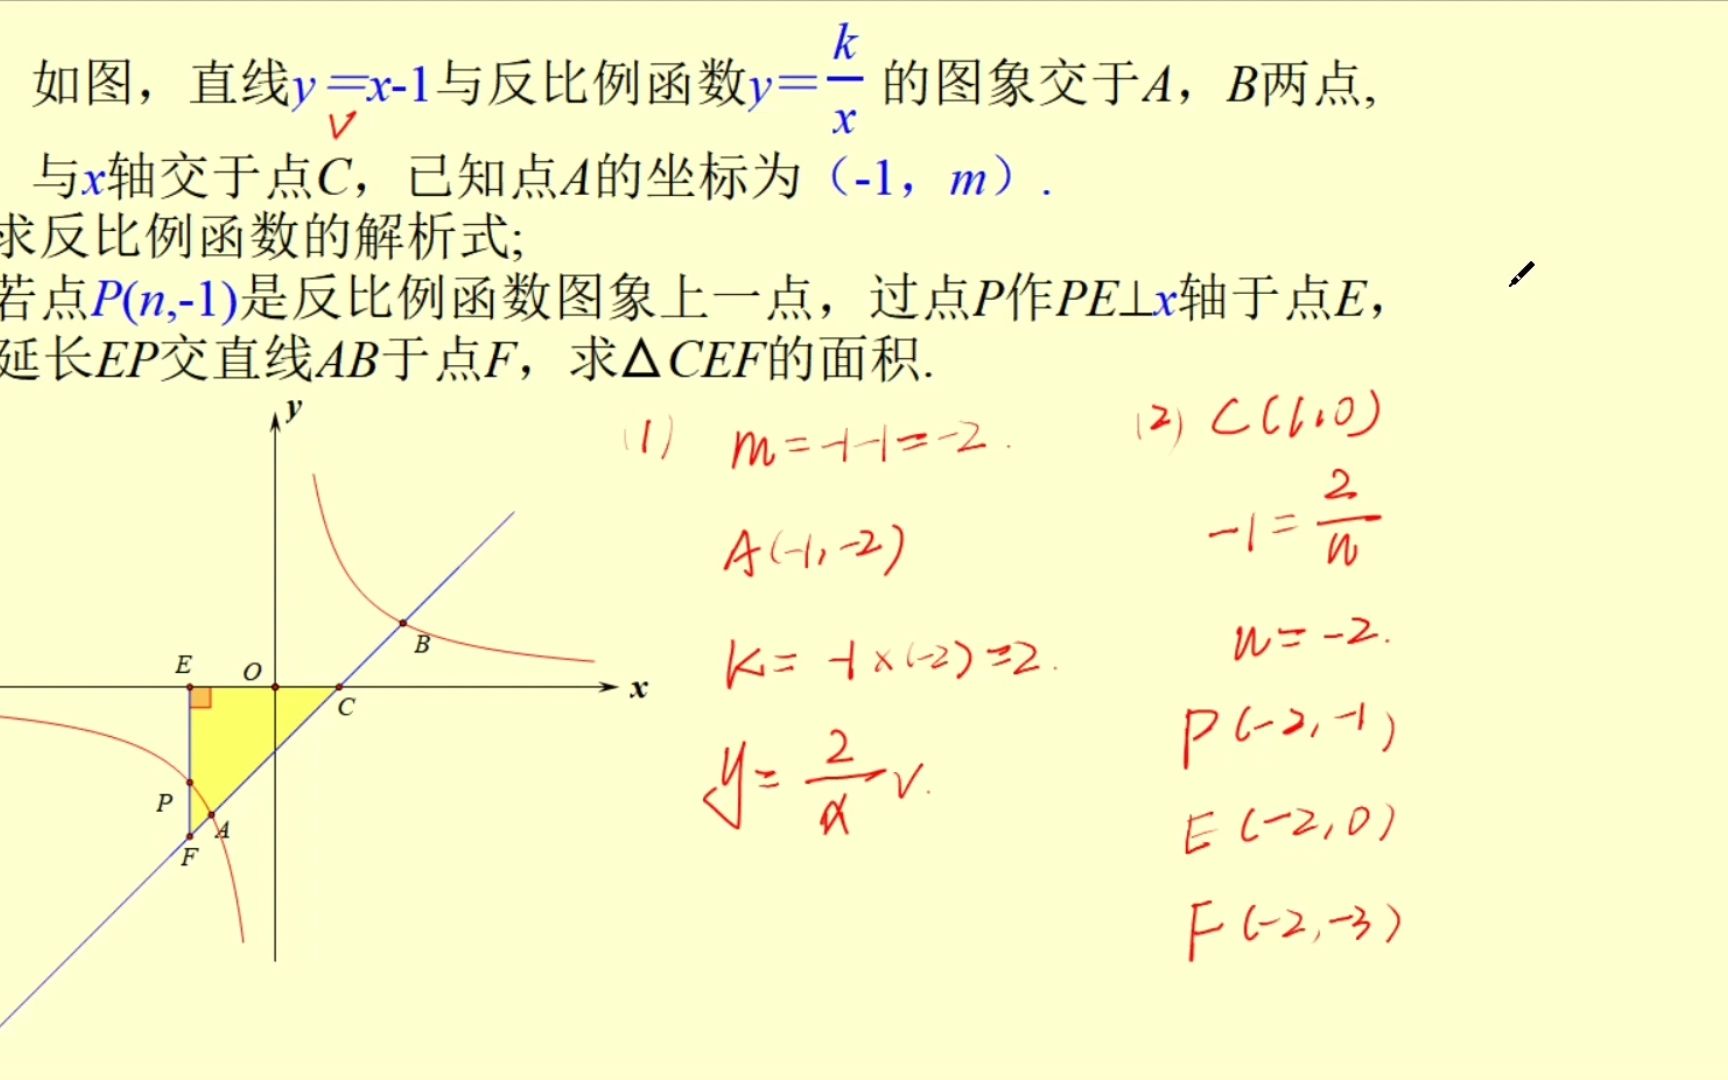 如图，直线y＝x-1与反比例函数y＝k/x 的图象交于A，B两点,
与x轴交于点C，已知点A的坐标为（-1，m）.
求反比例函数的解析式;
若点P(n,-1)是反比例函数图象上一点，过点P作PE⊥x轴于点E，
延长EP交直线AB于点F，求△CEF的面积.
y
E
O
B
C
x
P
A
F
(1) m=-1-1=-2.
A(-1,-2)
K=-1×(-2)=2.
y=2/x
(2) C(1,0)
-1=2/n
n=-2.
P(-2,-1)
E(-2,0)
F(-2,-3)